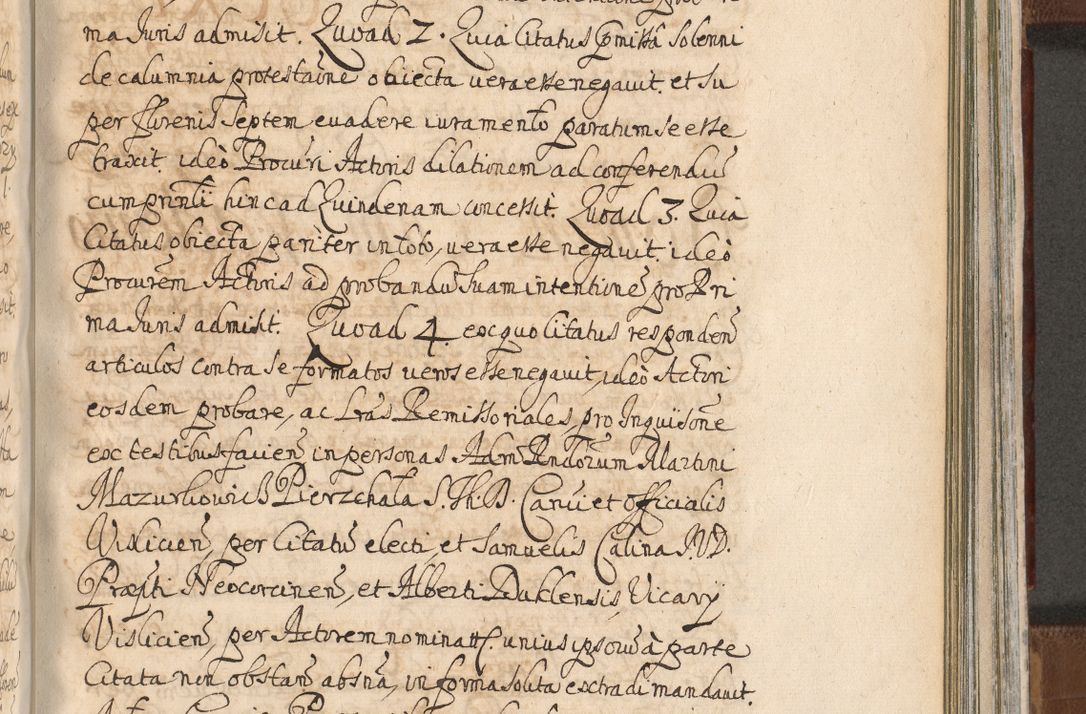 ma Juris admisit. Quoad 2. Quia Citatus pmissa solenni
de calumnia protestaōne obiecta vera esse negavit. et su
per florenis septem evadere iuramento paratum se esse
traxit. ideò Procuri Actoris dilationem ad conferendū
cum prinli hinc ad Quindenam concessit. Quoad 3. Quia
Citatus obiecta pariter in toto, vera esse negavit. ideò
Procurem Actoris ad probandū suam intentionē pro Pri
ma Juris admisit. Quoad 4. ex quo Citatus responden̄
articulos contra se formatos veros esse negavit, ideò Actori
eosdem probare, ac Lrās Remissoriales, pro Inquisōne
ex testibus facien̄ in personas Adm Rndorum Martini
Mazurkovich Pierzchała S.Th.D. Canci et Officialis
Vislicien̄, per Citatū electi, et Samuelis Calina J.V.D.
Præpti Neocorcinen̄, et Alberti Duklensis, Vicary
Vislicien̄, per Actorem nominatt. unius ipsorū à parte
Citata non obstan̄ absnā, in forma solita extradi mandavit.